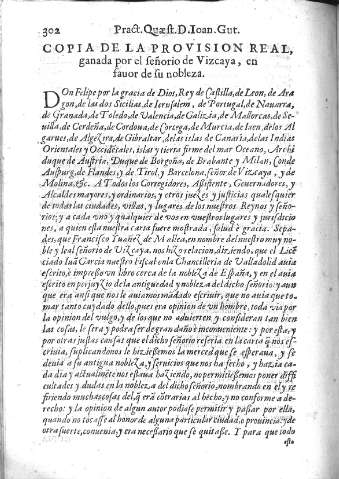 302 Pract. Quæst. D. Ioan. Gut.
COPIA DE LA PROVISION REAL,
ganada por el señorio de Vizcaya, en
fauor de su nobleza.
DOn Felipe por la gracia de Dios, Rey de Castilla, de Leon, de Ara
gon, de las dos Sicilias, de Ierusalem, de Portugal, de Nauarra,
de Granada, de Toledo, de Valencia, de Galizia, de Mallorcas, de Se-
uilla, de Cerdeña, de Cordoua, de Corcega, de Murcia, de Iaen, de los Al
garues, de Algezira, de Gibraltar, de las islas de Canaria, de las Indias
Orientales y Occidẽtales, islas y tierra firme del mar Oceano, Archi
duque de Austria, Duque de Borgoña, de Brabante y Milan, Conde
de Flandes, y de Tirol, y Barcelona, señor de Vizcaya, y
de Molina, &c. A Todos los Corregidores, Asistente, Gouernadores, y
Alcaldes mayores, y ordinarios, y otros juezes y justicias qualesquier
de todas las ciudades, villas, y lugares de los nuestros Reynos y seño-
rios; y a cada vno y qualquier de vos en vuestros lugares y jurisdicio
nes, a quien esta nuestra carta fuere mostrada, salud y gracia. Sepa-
des, que Francisco de Mallea, en nombre del nuestro muy no-
ble y leal señorio de Vizcaya, nos hizo relacion, diziendo, que el Licẽ
ciado Iuã Garcia nuestro Fiscal en la Chancilleria de Valladolid auia
escrito, è impresso vn libro cerca de la nobleza de España, y en el auia
escrito en perjuyzio de la antiguedad y nobleza del dicho señorio: y aun
que era ansi que no le auiamos mãdado escriuir, que no auia que to-
mar tanto cuydado dello, pues era opinion de vn hombre, toda via por
la opinion del vulgo, y de los que no aduierten, y consideran tan bien
las cosas, le sera y podra ser de gran daño è inconueniente: y por esta, y
por otras justas causas que el dicho señorio referia en la carta q̃ nos es-
criuia, suplicandonos le hiziessemos la merced que se esperaua, y se
deuia a su antigua nobleza, y seruicios que nos ha fecho, y hazia ca-
da dia y actualmẽte nos estaua haziendo, no permitiessemos poner diffi
cultades y dudas en la nobleza del dicho señorio, nombrando en el y re
firiendo muchas cosas del, q̃ erã cõtrarias al hecho, y no conforme a de-
recho: y la opinion de algun autor podiase permitir y passar por ella,
quando no tocasse al honor de alguna particular ciudad, o prouincia; y de
otra suerte, conuenia, y era necessario que se quitasse. Y para que todo
esto